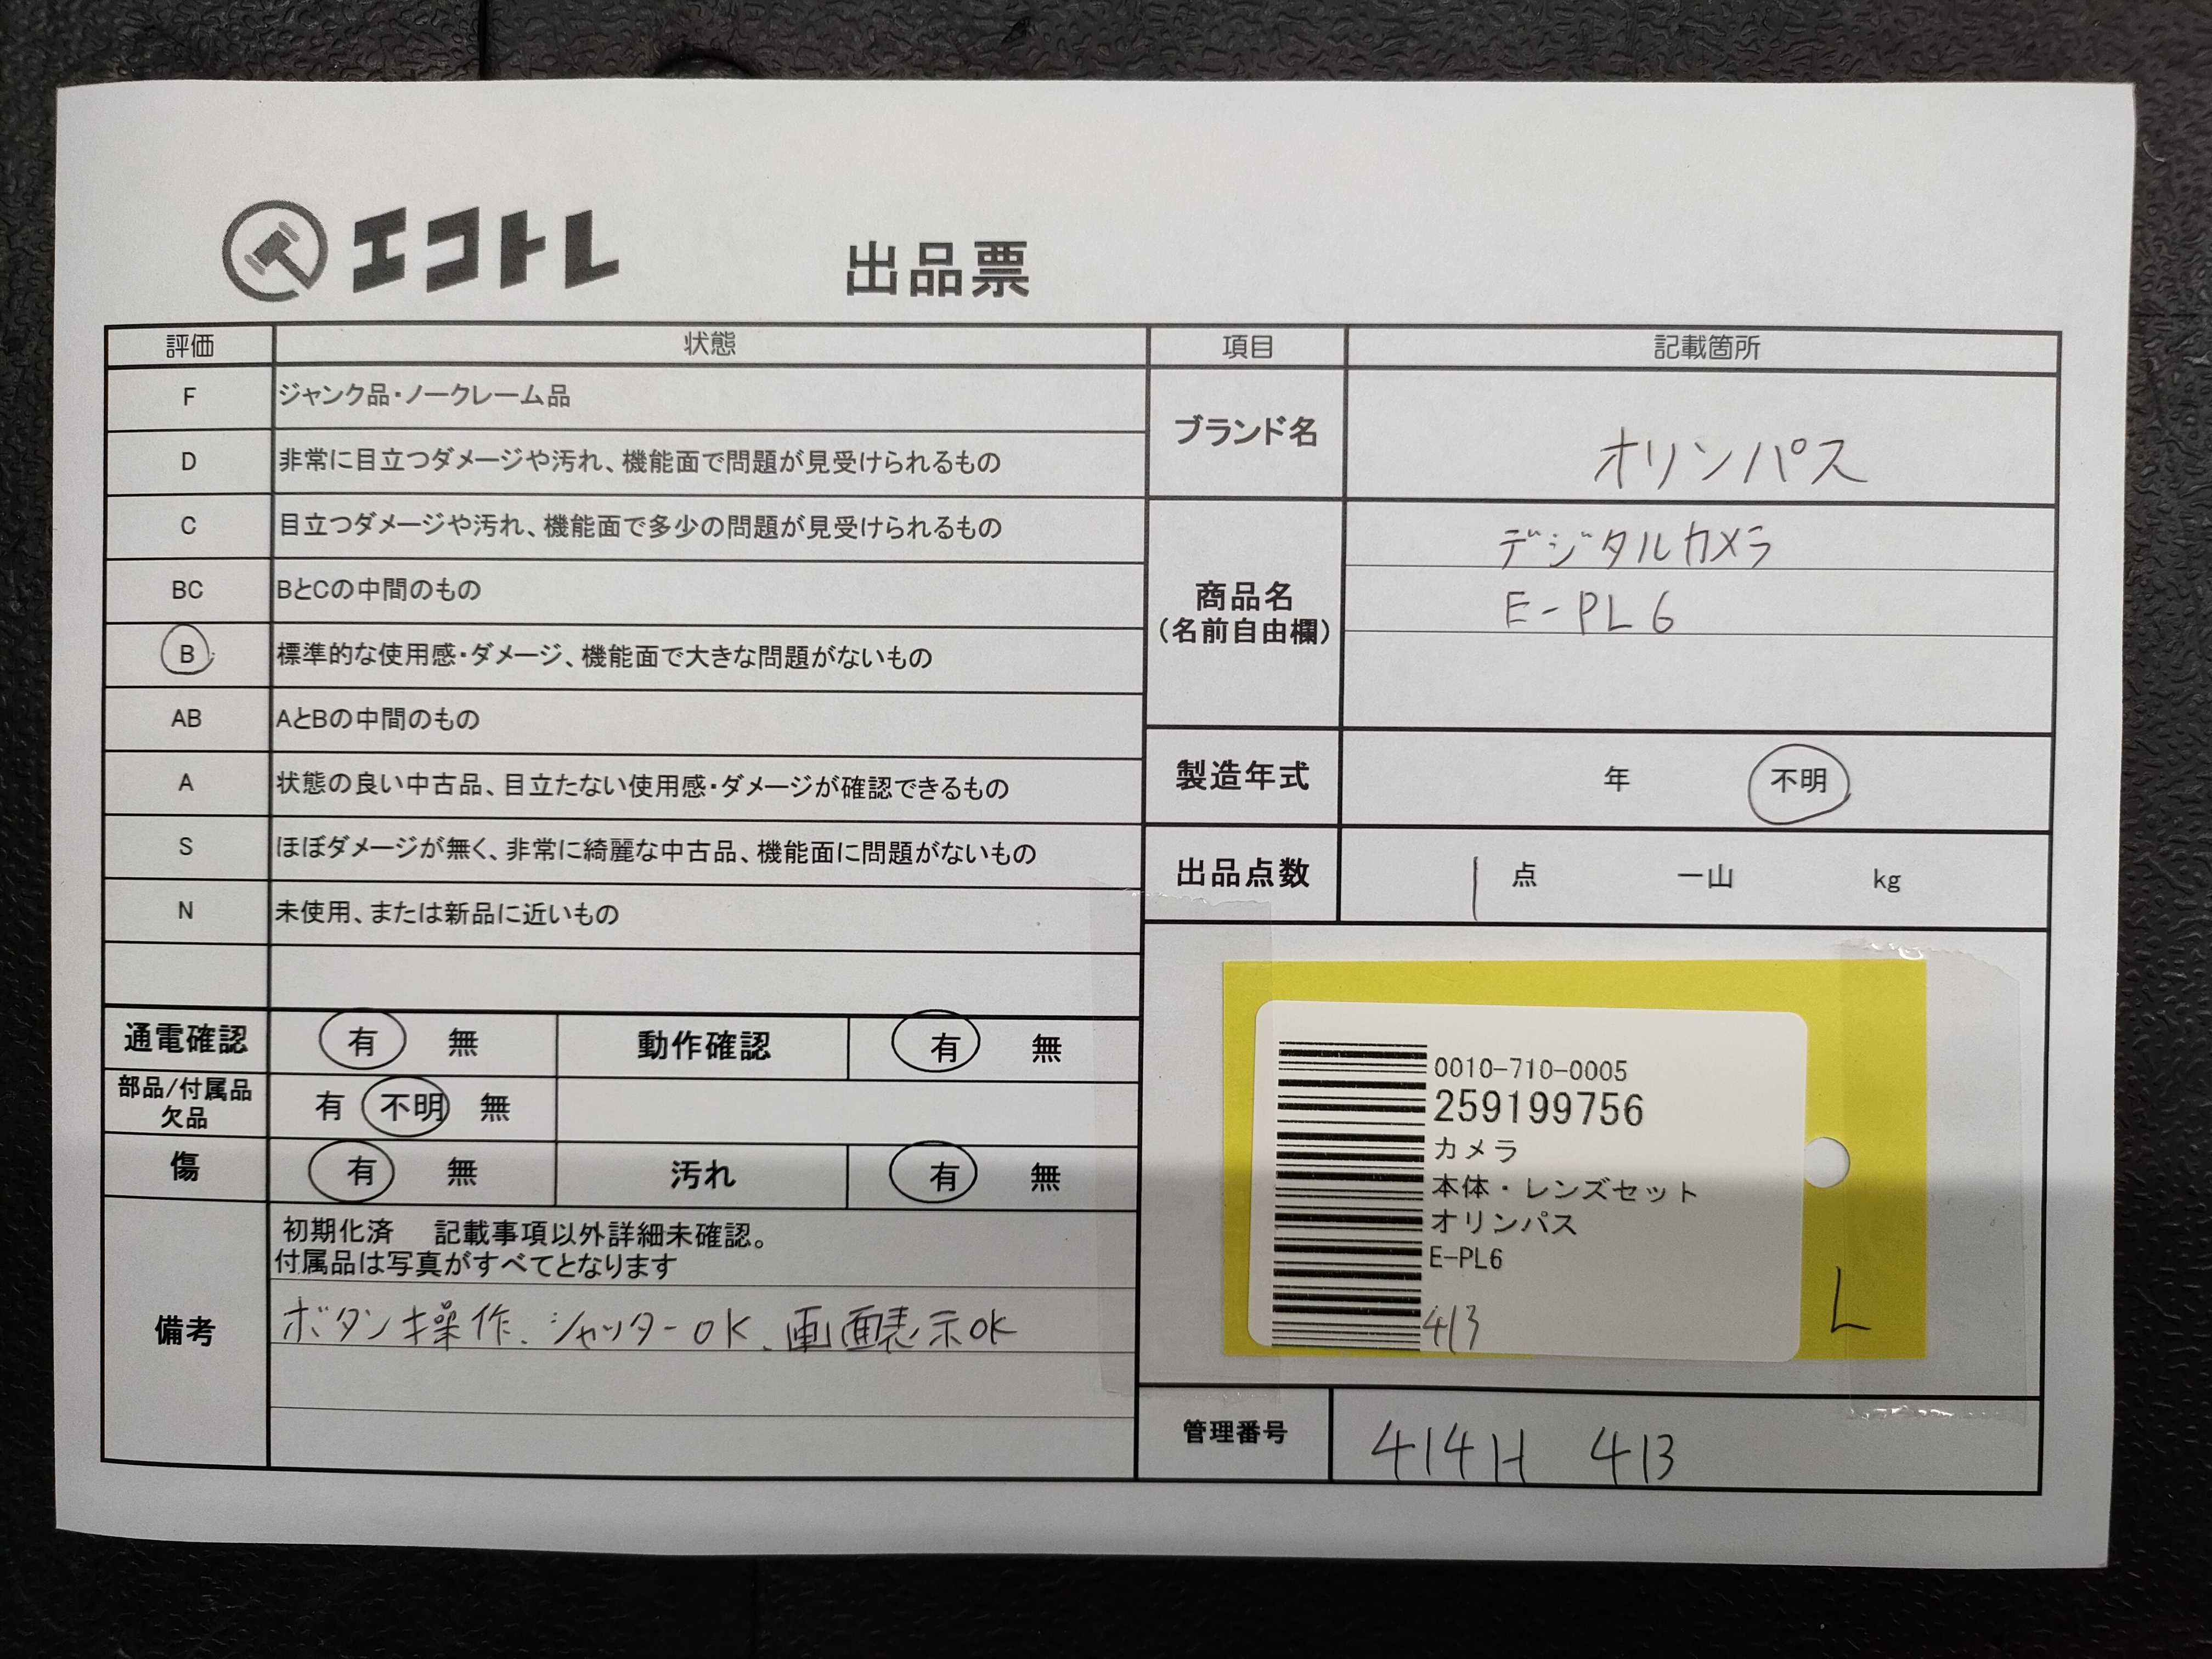 エコトレ
出品票
評価 状態
F ジャンク品・ノークレーム品
D 非常に目立つダメージや汚れ、機能面で問題が見受けられるもの
C 目立つダメージや汚れ、機能面で多少の問題が見受けられるもの
BC BとCの中間のもの
B 標準的な使用感・ダメージ、機能面で大きな問題がないもの
AB AとBの中間のもの
A 状態の良い中古品、目立たない使用感・ダメージが確認できるもの
S ほぼダメージが無く、非常に綺麗な中古品、機能面に問題がないもの
N 未使用、または新品に近いもの
通電確認 有 無 動作確認 有 無
部品/付属品
欠品 有 不明 無
傷 有 無 汚れ 有 無
備考
初期化済 記載事項以外詳細未確認。
付属品は写真がすべてとなります
ボタン操作、シャッターOK、画面表示OK
項目 記載箇所
ブランド名 オリンパス
商品名
(名前自由欄)
デジタルカメラ
E-PL6
製造年式 年 不明
出品点数 1 点 一山 kg
0010-710-0005
259199756
カメラ
本体・レンズセット
オリンパス
E-PL6
413
L
管理番号 414H 413